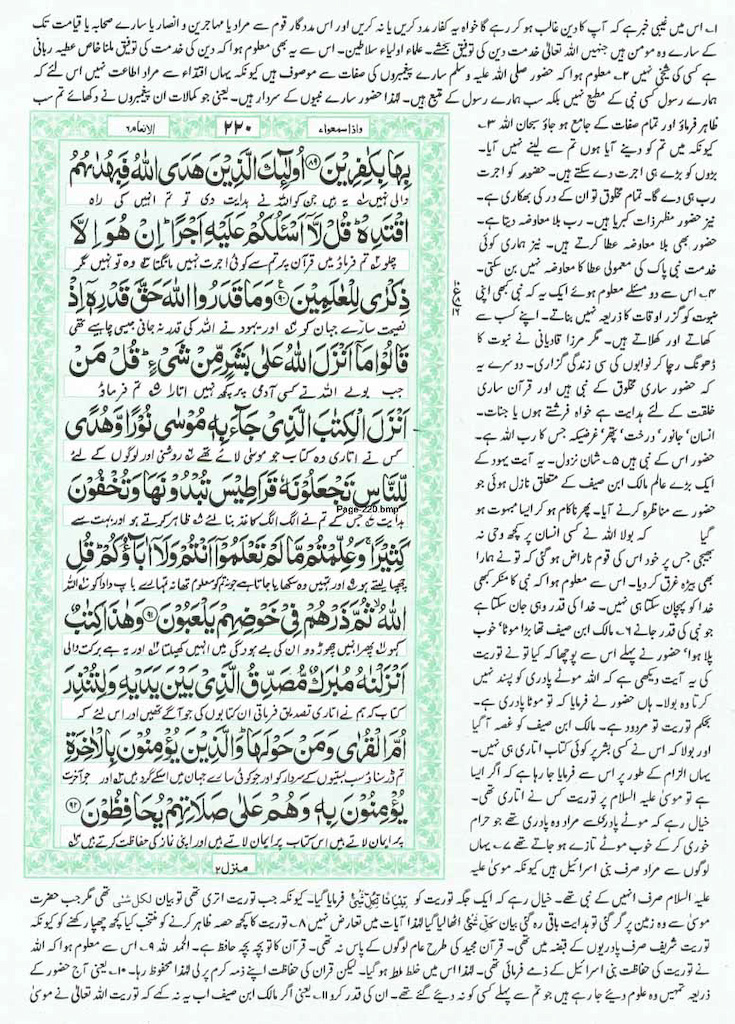 ۱۔ اس میں غیبی خبر ہے کہ آپ کا دین غالب ہو کر رہے گا خواہ یہ کفار مدد کریں یا نہ کریں اور اس مددگار قوم سے مراد یا مہاجرین و انصار یا سارے صحابہ یا قیامت تک
کے سارے وہ مومن ہیں جنہیں اللہ تعالیٰ خدمت دین کی توفیق بخشے۔ علماء اولیاء سلاطین۔ اس سے یہ بھی معلوم ہوا کہ دین کی خدمت کی توفیق ملنا خاص عطیہ ربانی
ہے کسی کی شیخی نہیں ۲۔ معلوم ہوا کہ حضور صلی اللہ علیہ وسلم سارے پیغمبروں کی صفات سے موصوف ہیں کیونکہ یہاں اقتداء سے مراد اطاعت نہیں اس لئے کہ
ہمارے رسول کسی نبی کے مطیع نہیں بلکہ سب ہمارے رسول کے متبع ہیں۔ لہٰذا حضور سارے نبیوں کے سردار ہیں۔ یعنی جو کمالات ان پیغمبروں نے دکھائے تم سب
ظاہر فرماؤ اور تمام صفات کے جامع ہو جاؤ سبحان اللہ ۳۔
کیونکہ میں تم کو دینے آیا ہوں تم سے لینے نہیں آیا۔
بڑوں کو بڑے ہی اجرت دے سکتے ہیں۔ حضور کو اجرت
رب ہی دے گا۔ تمام مخلوق تو ان کے در کی بھکاری ہے۔
نیز حضور مظہر ذات کبریا ہیں۔ رب بلا معاوضہ دیتا ہے۔
حضور بھی بلا معاوضہ عطا کرتے ہیں۔ نیز ہماری کوئی
خدمت نبی پاک کی معمولی عطا کا معاوضہ نہیں بن سکتی۔
۴۔ اس سے دو مسئلے معلوم ہوئے ایک یہ کہ نبی کبھی اپنی
نبوت کو گزر اوقات کا ذریعہ نہیں بناتے۔ اپنے کسب سے
کھاتے اور کھلاتے ہیں۔ مگر مرزا قادیانی نے نبوت کا
ڈھونگ رچا کر نوابوں کی سی زندگی گزاری۔ دوسرے یہ
کہ حضور ساری مخلوق کے نبی ہیں اور قرآن ساری
خلقت کے لئے ہدایت ہے خواہ فرشتے ہوں یا جنات۔
انسان' جانور' درخت' پتھر' غرضیکہ جس کا رب اللہ ہے۔
حضور اس کے نبی ہیں ۵۔ شان نزول۔ یہ آیت یہود کے
ایک بڑے عالم مالک ابن صیف کے متعلق نازل ہوئی جو
حضور سے مناظرہ کرنے آیا۔ پھر ناکام ہو کر ایسا مبہوت ہو
گیا کہ بولا اللہ نے کسی انسان پر کچھ وحی نہ
بھیجی جس پر خود اس کی قوم ناراض ہو گئی کہ تو نے ہمارا
بھی بیڑہ غرق کر دیا۔ اس سے معلوم ہوا کہ نبی کا منکر کبھی
خدا کو پہچان سکتا ہی نہیں۔ خدا کی قدر وہی جان سکتا ہے
جو نبی کی قدر جانے ۶۔ مالک ابن صیف تھا بڑا موٹا' خوب
پلا ہوا' حضور نے پہلے اس سے پوچھا کہ کیا تو نے توریت
کی یہ آیت دیکھی ہے کہ اللہ موٹے پادری کو پسند نہیں
کرتا وہ بولا۔ ہاں حضور نے فرمایا کہ تو موٹا پادری ہے۔
بحکم توریت تو مردود ہے۔ مالک ابن صیف کو غصہ آ گیا
اور بولا کہ اس نے کسی بشر پر کوئی کتاب اتاری ہی نہیں۔
یہاں الزام کے طور پر اس سے فرمایا جا رہا ہے کہ اگر ایسا
ہے تو موسیٰ علیہ السلام پر توریت کس نے اتاری تھی۔
خیال رہے کہ موٹے پادری سے مراد وہ پادری تھے جو حرام
خوری کر کے خوب موٹے تازے ہو جاتے تھے ۷۔ یہاں
لوگوں سے مراد صرف بنی اسرائیل ہیں کیونکہ موسیٰ علیہ
واذا سمعوا ۷ ۲۲۰ الانعام ۶
بِهَا بِكٰفِرِيْنَ ﴿۸۹﴾ اُولٰٓئِكَ الَّذِيْنَ هَدَى اللّٰهُ فَبِهُدٰىهُمُ
والی نہیں یہ ہیں جن کو اللہ نے ہدایت دی تو تم انہیں کی راہ
اقْتَدِهْ ؕ قُلْ لَّاۤ اَسْـَٔلُكُمْ عَلَيْهِ اَجْرًا ؕ اِنْ هُوَ اِلَّا
چلو تم فرماؤ میں قرآن پر تم سے کوئی اجرت نہیں مانگتا وہ تو نہیں مگر
ذِكْرٰى لِلْعٰلَمِيْنَ ﴿۹۰﴾ وَمَا قَدَرُوا اللّٰهَ حَقَّ قَدْرِهٖۤ اِذْ
نصیحت سارے جہان کو اور یہود نے اللہ کی قدر نہ جانی جیسی چاہیے تھی
قَالُوْا مَاۤ اَنْزَلَ اللّٰهُ عَلٰى بَشَرٍ مِّنْ شَيْءٍ ؕ قُلْ مَنْ
جب بولے اللہ نے کسی آدمی پر کچھ نہیں اتارا تم فرماؤ
اَنْزَلَ الْكِتٰبَ الَّذِيْ جَآءَ بِهٖ مُوْسٰى نُوْرًا وَّهُدًى
کس نے اتاری وہ کتاب جو موسیٰ لائے تھے روشنی اور لوگوں کے لئے
لِّلنَّاسِ تَجْعَلُوْنَهٗ قَرَاطِيْسَ تُبْدُوْنَهَا وَتُخْفُوْنَ
ہدایت جس کے تم نے الگ الگ کاغذ بنا لئے ظاہر کرتے ہو اور بہت سے
Page-220.bmp
كَثِيْرًا ۚ وَعُلِّمْتُمْ مَّا لَمْ تَعْلَمُوْۤا اَنْتُمْ وَلَاۤ اٰبَآؤُكُمْ ؕ قُلِ
چھپا لیتے ہو اور تمہیں وہ سکھایا جاتا ہے جو نہ تم کو معلوم تھا نہ تمہارے باپ دادا کو اللہ
اللّٰهُ ۙ ثُمَّ ذَرْهُمْ فِيْ خَوْضِهِمْ يَلْعَبُوْنَ ﴿۹۱﴾ وَهٰذَا كِتٰبٌ
کہو پھر انہیں چھوڑ دو ان کی بے ہودگی میں انہیں کھیلتا اور یہ ہے برکت والی
اَنْزَلْنٰهُ مُبٰرَكٌ مُّصَدِّقُ الَّذِيْ بَيْنَ يَدَيْهِ وَلِتُنْذِرَ
کتاب کہ ہم نے اتاری تصدیق فرماتی ان کتابوں کی جو آگے تھیں اور اس لئے کہ
اُمَّ الْقُرٰى وَمَنْ حَوْلَهَا ؕ وَالَّذِيْنَ يُؤْمِنُوْنَ بِالْاٰخِرَةِ
تم ڈر سناؤ سب بستیوں کے سردار کو اور جو کوئی سارے جہان میں اس کے گرد ہیں اور جو آخرت
يُؤْمِنُوْنَ بِهٖ وَهُمْ عَلٰى صَلَاتِهِمْ يُحَافِظُوْنَ ﴿۹۲﴾
پر ایمان لاتے ہیں اس کتاب پر ایمان لاتے ہیں اور اپنی نماز کی حفاظت کرتے ہیں
منزل ۲
علیہ السلام صرف انہیں کے نبی تھے۔ خیال رہے کہ ایک جگہ توریت کو فرمایا گیا۔ کیونکہ جب توریت اتری تھی تو بیان لکل شئی تھی مگر جب حضرت
موسیٰ سے وہ زمین پر گر گئی تو ہدایت باقی رہ گئی بیان اٹھا لیا گیا لہٰذا آیات میں تعارض نہیں ۸۔ توریت کا کچھ حصہ ظاہر کرنے کو منتخب کیا کچھ چھپا رکھنے کو کیونکہ
توریت شریف صرف پادریوں کے قبضہ میں تھی۔ قرآن مجید کی طرح عام لوگوں کے پاس نہ تھی۔ قرآن کا تو بچہ بچہ حافظ ہے۔ الحمد للہ ۹۔ اس سے معلوم ہوا کہ اللہ
نے توریت کی حفاظت بنی اسرائیل کے ذمے فرمائی تھی۔ لہٰذا اس میں خلط ملط ہو گیا۔ لیکن قرآن کی حفاظت اپنے ذمہ کرم پر لی لہٰذا محفوظ رہا۔ ۱۰۔ یعنی آج حضور کے
ذریعہ تمہیں وہ علوم دیئے جا رہے ہیں جو تم سے پہلے کسی کو نہ دیئے گئے تھے۔ ان کی قدر کرو ۱۱۔ یعنی اگر مالک ابن صیف اب یہ نہ کہے کہ توریت اللہ تعالیٰ نے موسیٰ